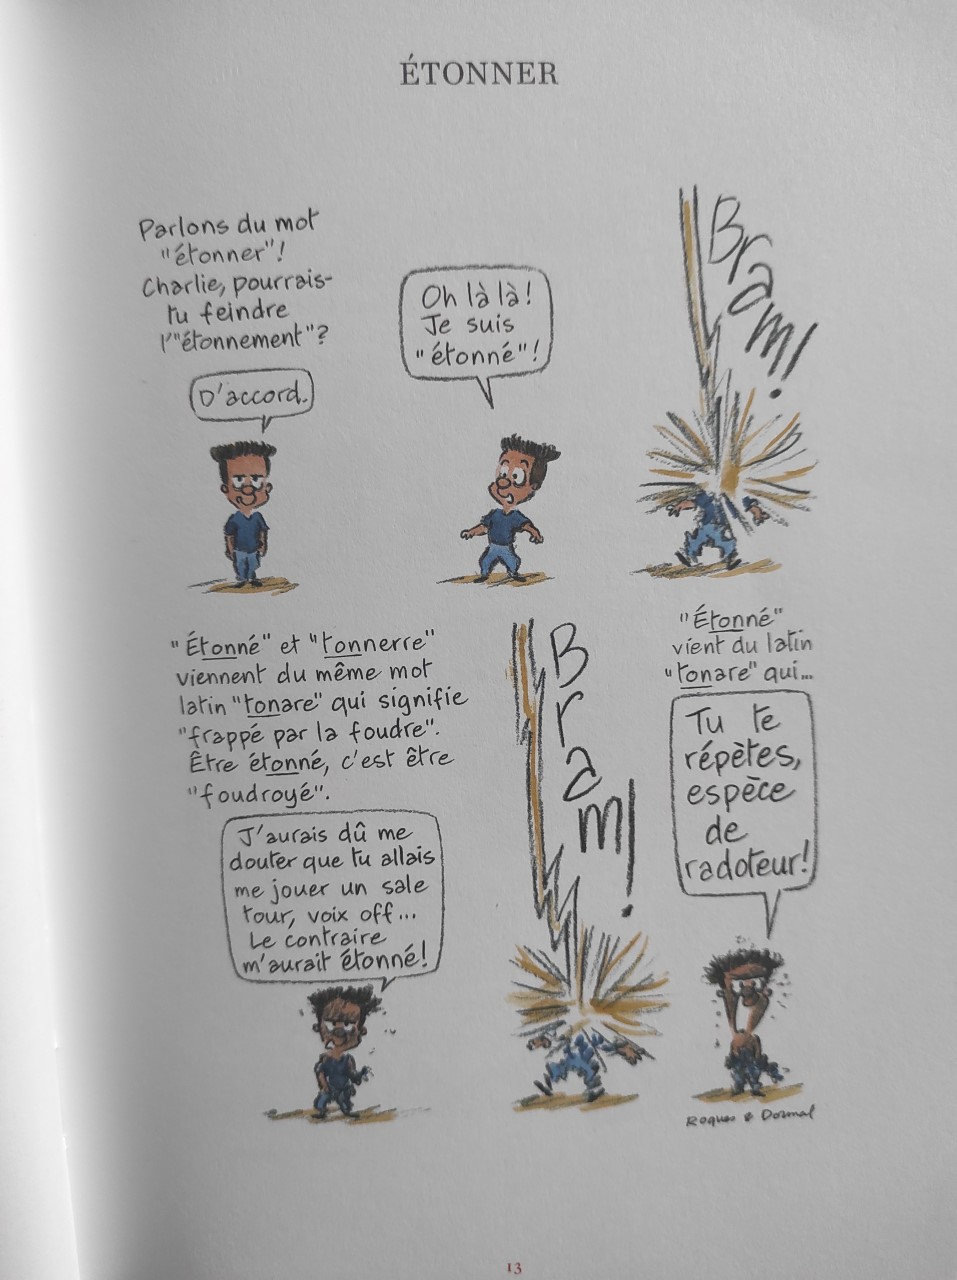 ÉTONNER
Parlons du mot
"étonner"!
Charlie, pourrais-
tu feindre
l'"étonnement"?
D'accord.
Oh là là!
Je suis
"étonné"!
Bram!
"Étonné" et "tonnerre"
viennent du même mot
latin "tonare" qui signifie
"frappé par la foudre".
Être étonné, c'est être
"foudroyé".
J'aurais dû me
douter que tu allais
me jouer un sale
tour, voix off...
Le contraire
m'aurait étonné!
Bram!
"Étonné"
vient du latin
"tonare" qui...
Tu te
répètes,
espèce
de
radoteur!
Roques & Dormal
13